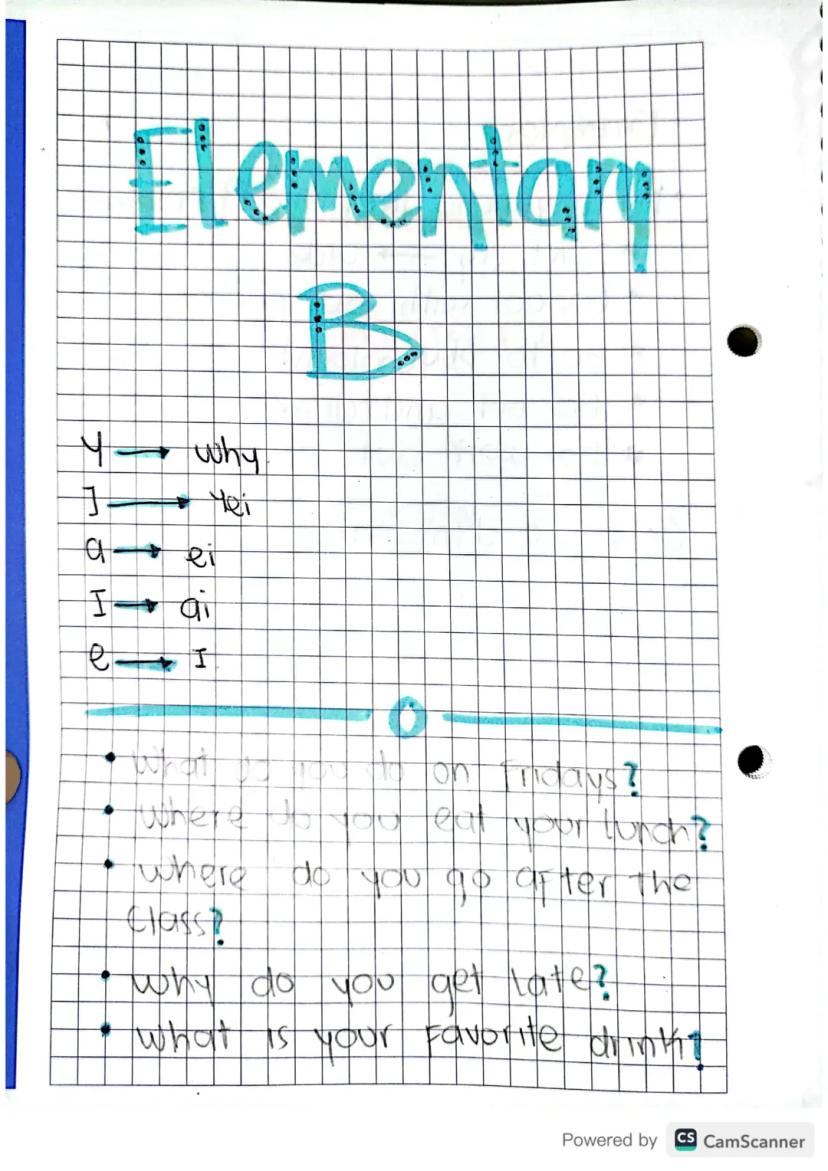 Elementary
B
Y → why
J → Yei
a → ei
I → ai
e → I
• What do you do on Fridays?
• where do you eat your lunch?
• where do you go after the
Class?
• why do you get late?
• what is your Favorite drink?
Powered by CS CamScanner